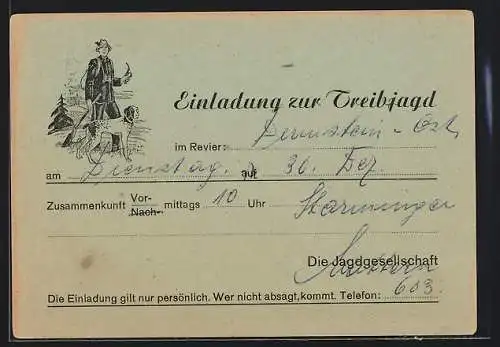 Einladung zur Treibjagd
im Revier: Bernstein - Ost
am Dienstag, 30. Dez.
Zusammenkunft Vor- Nach- mittags 10 Uhr
Die Jagdgesellschaft
Die Einladung gilt nur persönlich. Wer nicht absagt, kommt. Telefon: 603.